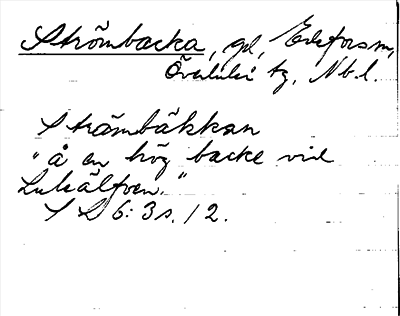 Strömbacka, gd, Edeforsm,
Överluleå tg, Nbl.
Strämbäkkan
"å en hög backe vid
Luleälfven."
SD 6: 3 s. 12.